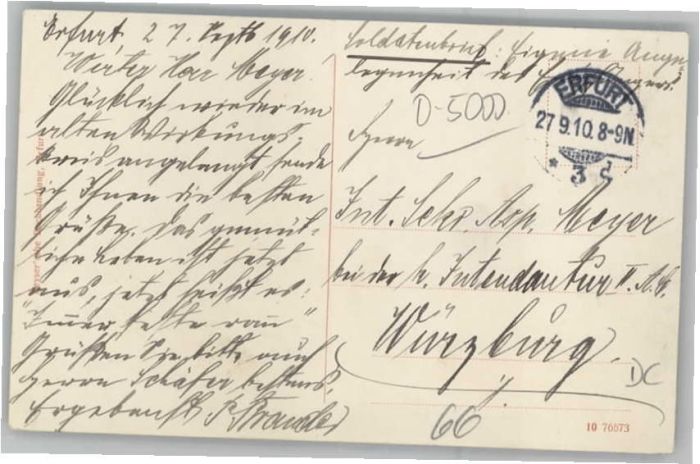 Erfurt, 27. Septb 1910.
Werter Herr Meyer!
Glücklich wieder im
alten Wirkungs-
kreis angelangt sende
ich Ihnen die besten
Grüße. Das gemüt-
liche Leben ist jetzt
aus, jetzt heißt es:
"Immer feste ran"
Grüßen Sie bitte auch
Herrn Schäfer bestens.
Ergebenst
Soldatenbrief: Eigene Ange-
legenheit des
D-5000
Herrn
Int. Sekr. Asp. Meyer
bei der k. Intendantur II. A.K.
Würzburg.
DC
66
ERFURT
27.9.10.8-9N
* 3 c
10 76673